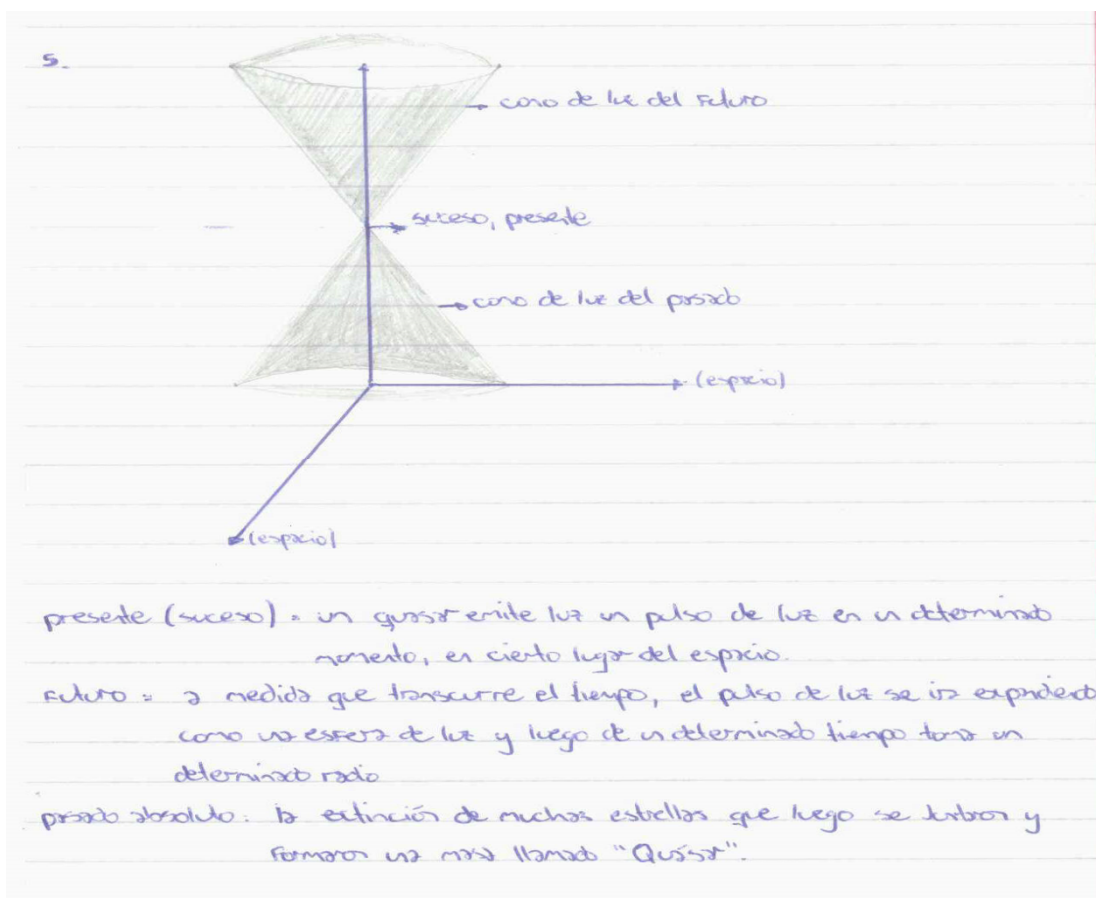 5.
cono de luz del Futuro
suceso, presente
cono de luz del pasado
(espacio)
(espacio)
presente (suceso) = un quasar emite luz un pulso de luz en un determinado
momento, en cierto lugar del espacio.
Futuro = a medida que transcurre el tiempo, el pulso de luz se ira expandiendo
como una esfera de luz y luego de un determinado tiempo toma un
determinado radio
pasado absoluto: la extinción de muchas estrellas que luego se y
Formaron una masa llamado "Quásar".